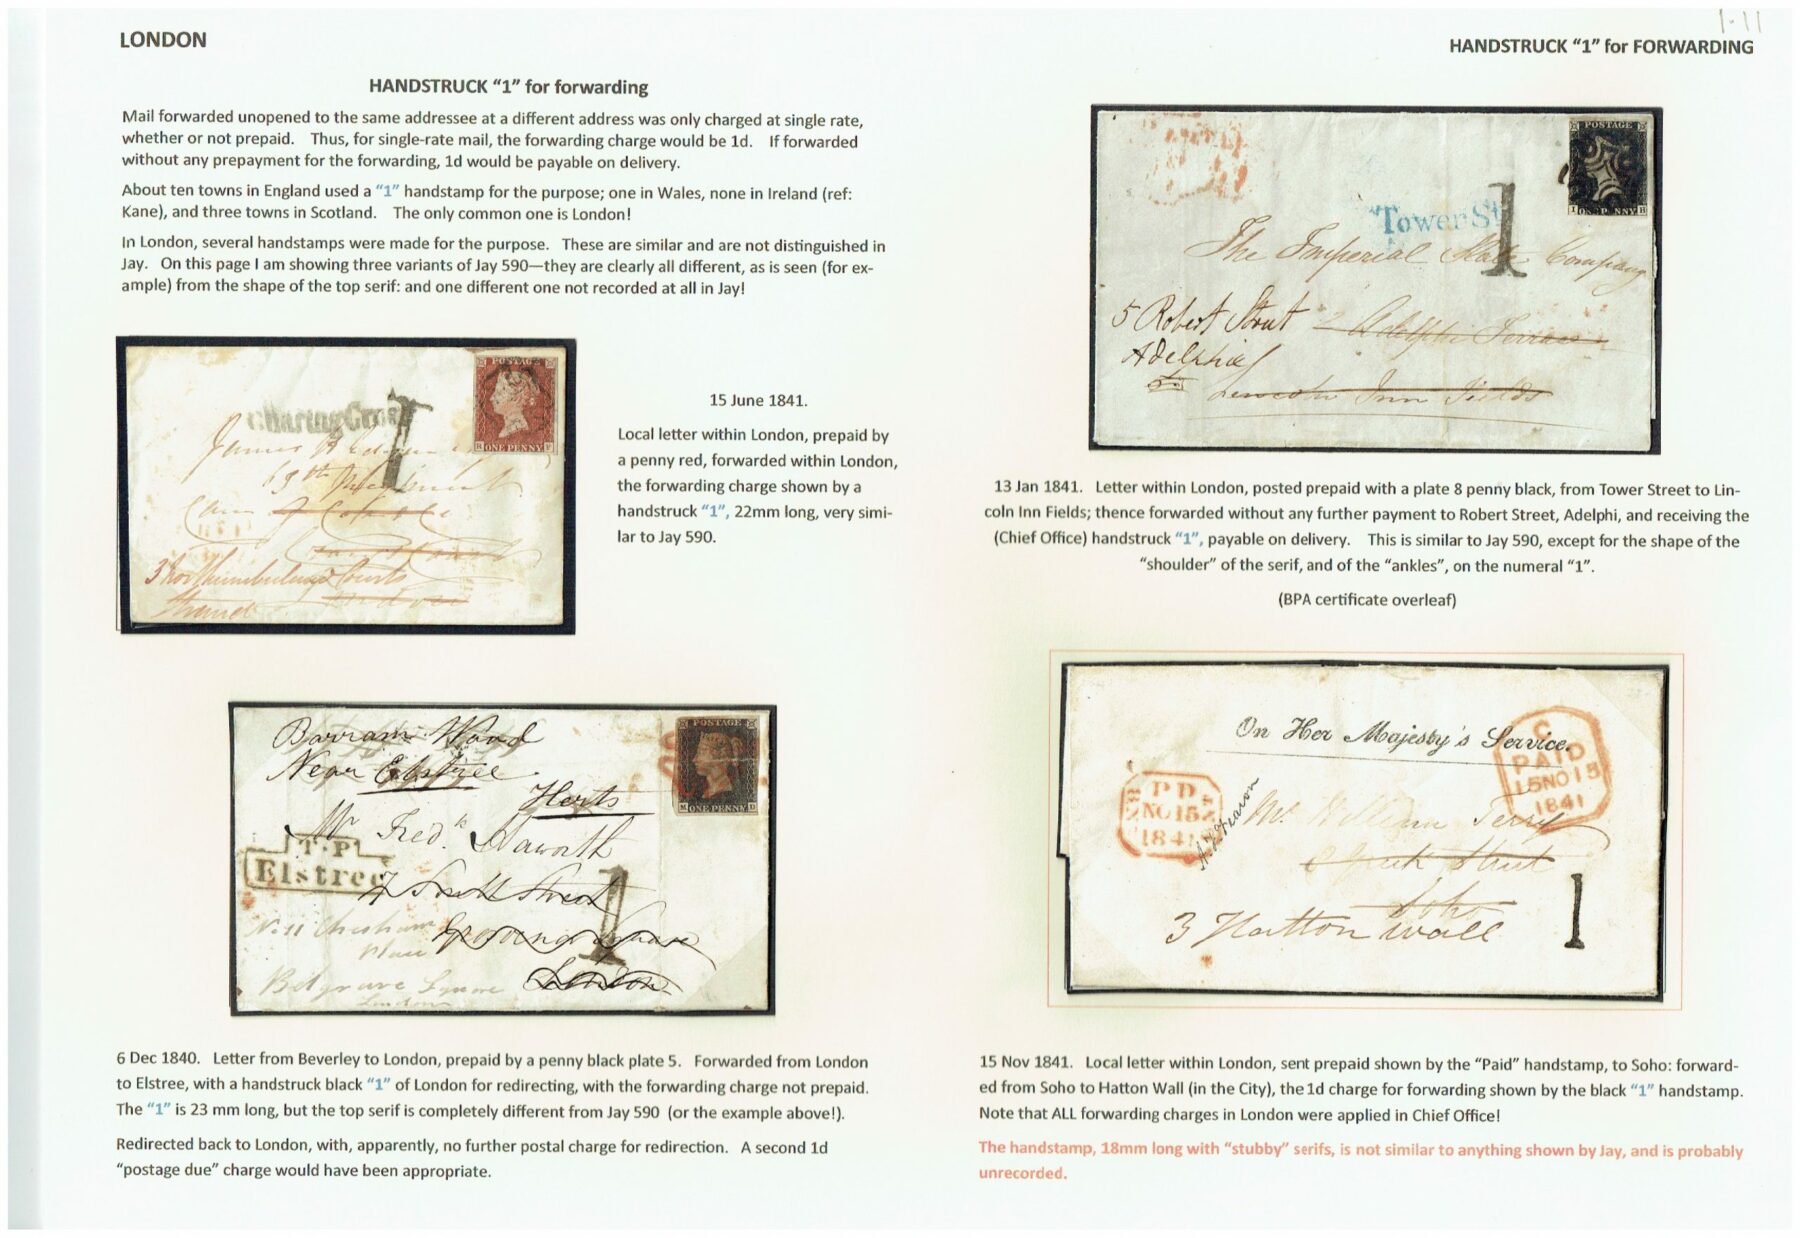 1.11
LONDON
HANDSTRUCK "1" for FORWARDING
HANDSTRUCK "1" for forwarding
Mail forwarded unopened to the same addressee at a different address was only charged at single rate,
whether or not prepaid. Thus, for single-rate mail, the forwarding charge would be 1d. If forwarded
without any prepayment for the forwarding, 1d would be payable on delivery.
About ten towns in England used a "1" handstamp for the purpose; one in Wales, none in Ireland (ref:
Kane), and three towns in Scotland. The only common one is London!
In London, several handstamps were made for the purpose. These are similar and are not distinguished in
Jay. On this page I am showing three variants of Jay 590—they are clearly all different, as is seen (for ex-
ample) from the shape of the top serif: and one different one not recorded at all in Jay!
POSTAGE
ONE PENNY
Charing Cross
1
James
69th
3 Northumberland Courts
Strand
15 June 1841.
Local letter within London, prepaid by
a penny red, forwarded within London,
the forwarding charge shown by a
handstruck "1", 22mm long, very simi-
lar to Jay 590.
Barram Wood
Near Elstree
Herts
POSTAGE
ONE PENNY
Mr Fredk Haworth
T.P
Elstree
7 South Street
Grosvenor Square
London
1
No 11 Chesham
Place
Belgrave Square
London
6 Dec 1840. Letter from Beverley to London, prepaid by a penny black plate 5. Forwarded from London
to Elstree, with a handstruck black "1" of London for redirecting, with the forwarding charge not prepaid.
The "1" is 23 mm long, but the top serif is completely different from Jay 590 (or the example above!).
Redirected back to London, with, apparently, no further postal charge for redirection. A second 1d
"postage due" charge would have been appropriate.
POSTAGE
I ONE PENNY H
Tower St
1
The Imperial Slate Company
5 Robert Street 2 Adelphi Terrace
Adelphi
Lincoln Inn Fields
13 Jan 1841. Letter within London, posted prepaid with a plate 8 penny black, from Tower Street to Lin-
coln Inn Fields; thence forwarded without any further payment to Robert Street, Adelphi, and receiving the
(Chief Office) handstruck "1", payable on delivery. This is similar to Jay 590, except for the shape of the
"shoulder" of the serif, and of the "ankles", on the numeral "1".
(BPA certificate overleaf)
On Her Majesty's Service.
C
PAID
15NO15
1841
PD
NO15
1841
Mr William Terry
Street
Soho
3 Hatton Wall
1
15 Nov 1841. Local letter within London, sent prepaid shown by the "Paid" handstamp, to Soho: forward-
ed from Soho to Hatton Wall (in the City), the 1d charge for forwarding shown by the black "1" handstamp.
Note that ALL forwarding charges in London were applied in Chief Office!
The handstamp, 18mm long with "stubby" serifs, is not similar to anything shown by Jay, and is probably
unrecorded.